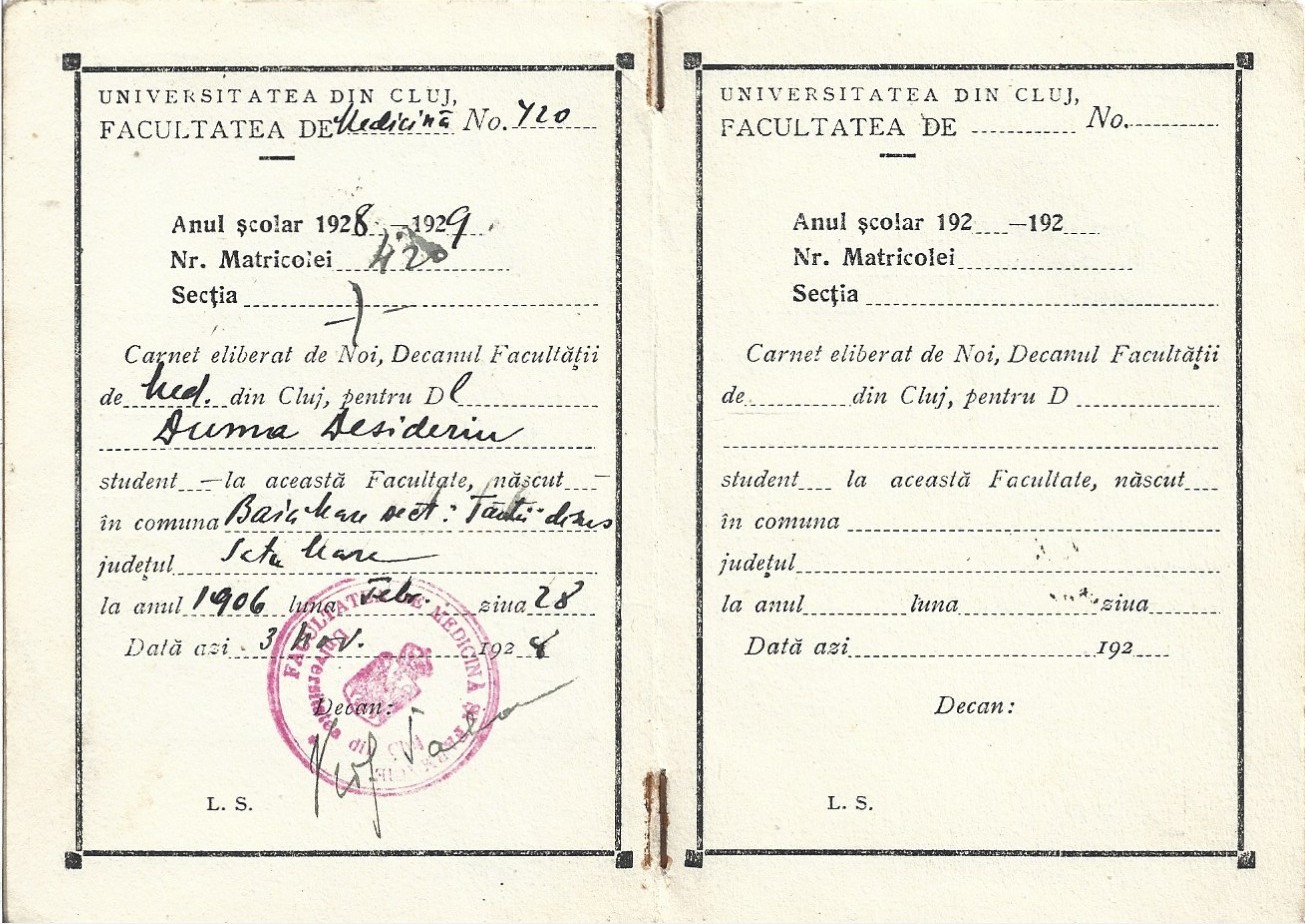 UNIVERSITATEA DIN CLUJ,
FACULTATEA DE Medicină No. 420
Anul școlar 1928—1929
Nr. Matricolei 420
Secția
Carnet eliberat de Noi, Decanul Facultății
de Med. din Cluj, pentru Dl
Duma Desideriu
student — la această Facultate, născut —
în comuna Baia Mare
județul Satu Mare
la anul 1906 luna Febr. ziua 28
Dată azi 3 Nov. 1928
FACULTATEA DE MEDICINĂ ȘI FARMACIE
Universitatea din Cluj
Decan:
L. S.
UNIVERSITATEA DIN CLUJ,
FACULTATEA DE No.
Anul școlar 192 —192
Nr. Matricolei
Secția
Carnet eliberat de Noi, Decanul Facultății
de din Cluj, pentru D
student la această Facultate, născut
în comuna
județul
la anul luna ziua
Dată azi 192
Decan:
L. S.